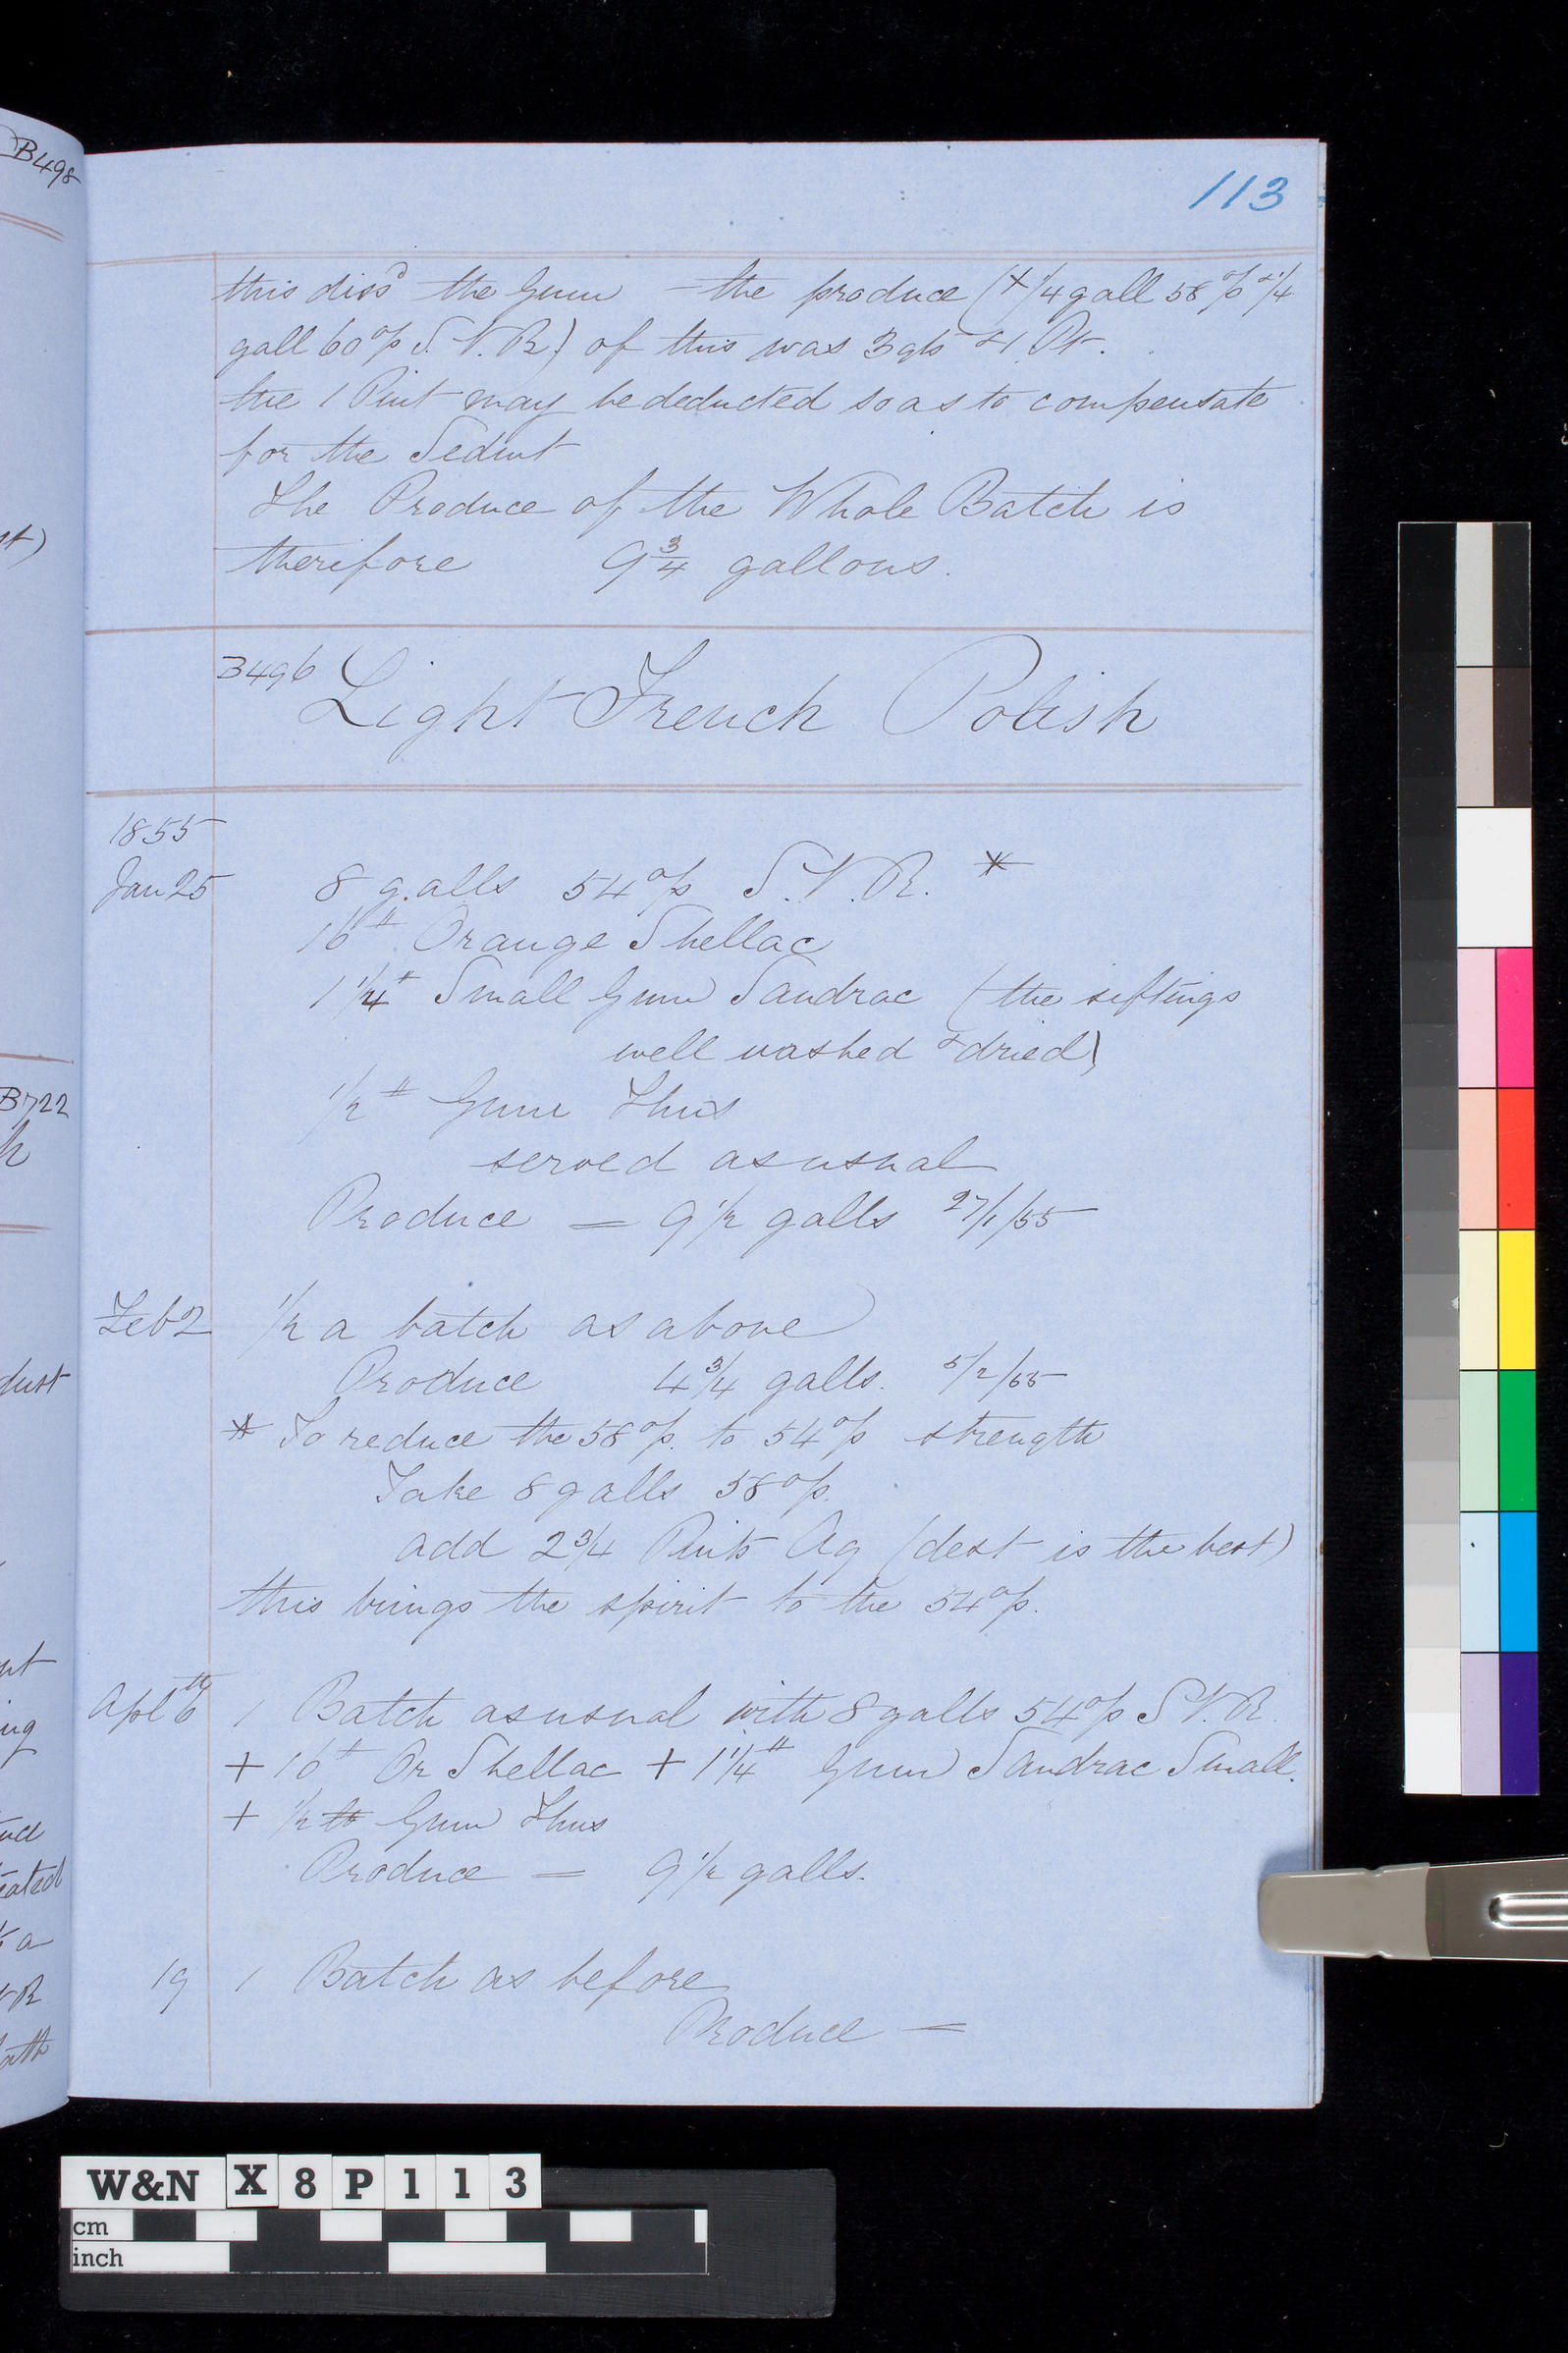 B498
113
this dissd the Gum – the produce (+ 1/4 gall 58 o/p & 1/4
gall 60 o/p S.V.R) of this was 3 qts & 1 Pt.
the 1 Pint may be deducted so as to compensate
for the Sedmt
The Produce of the Whole Batch is
therefore 9 3/4 gallons.
3496 Light French Polish
1855
Jan 25 8 galls 54 o/p S.V.R. *
16 # Orange Shellac
1 1/4 # Small Gum Sandrac (the siftings
well washed & dried)
1/2 # Gum Thus
served as usual
Produce = 9 1/2 galls 27/1/55
Feb 2 1/2 a batch as above
Produce 4 3/4 galls. 5/2/55
* To reduce the 58 o/p. to 54 o/p strength
Take 8 galls 58 o/p.
add 2 3/4 Pints Aq (dest is the best)
this brings the spirit to the 54 o/p.
Apl 6th 1 Batch as usual with 8 galls 54 o/p S V.R.
+ 16 # Or Shellac + 1 1/4 # Gum Sandrac Small.
+ 1/2 lb Gum Thus
Produce = 9 1/2 galls.
19 1 Batch as before
Produce =
B722
W&N X 8 P 1 1 3
cm
inch